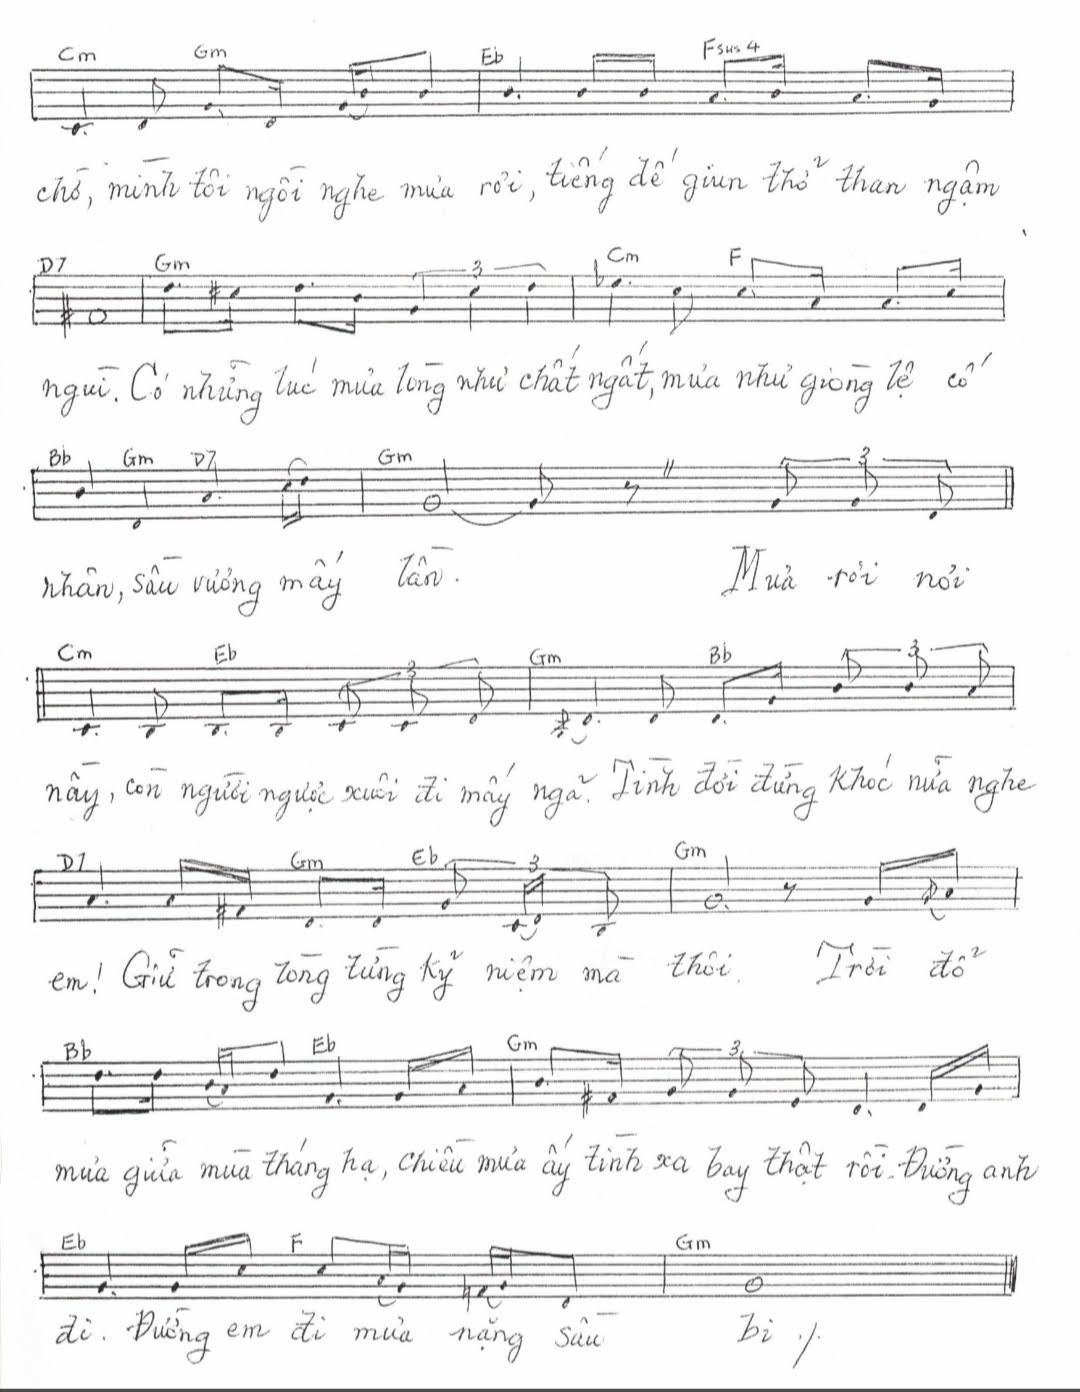 Cm Gm Eb Fsus4
chờ, mình tôi ngồi nghe mưa rơi, tiếng dế giun thở than ngậm
D7 Gm 3 Cm F
ngùi. Có những lúc mưa lòng như chất ngất, mưa như giòng lệ cố
Bb Gm D7 Gm 3
nhân, sầu vương mấy lần. Mưa rơi nơi
Cm Eb 3 Gm Bb 3
nầy, còn người ngược xuôi đi mấy ngã. Tình đời đừng khóc nữa nghe
D7 Gm Eb 3 Gm
em! Giữ trong lòng từng kỷ niệm mà thôi. Trời đổ
Bb Eb Gm 3
mưa giữa mùa tháng hạ, chiều mưa ấy tình xa bay thật rồi. Đường anh
Eb F Gm
đi. Đường em đi mưa nặng sầu bi ./.